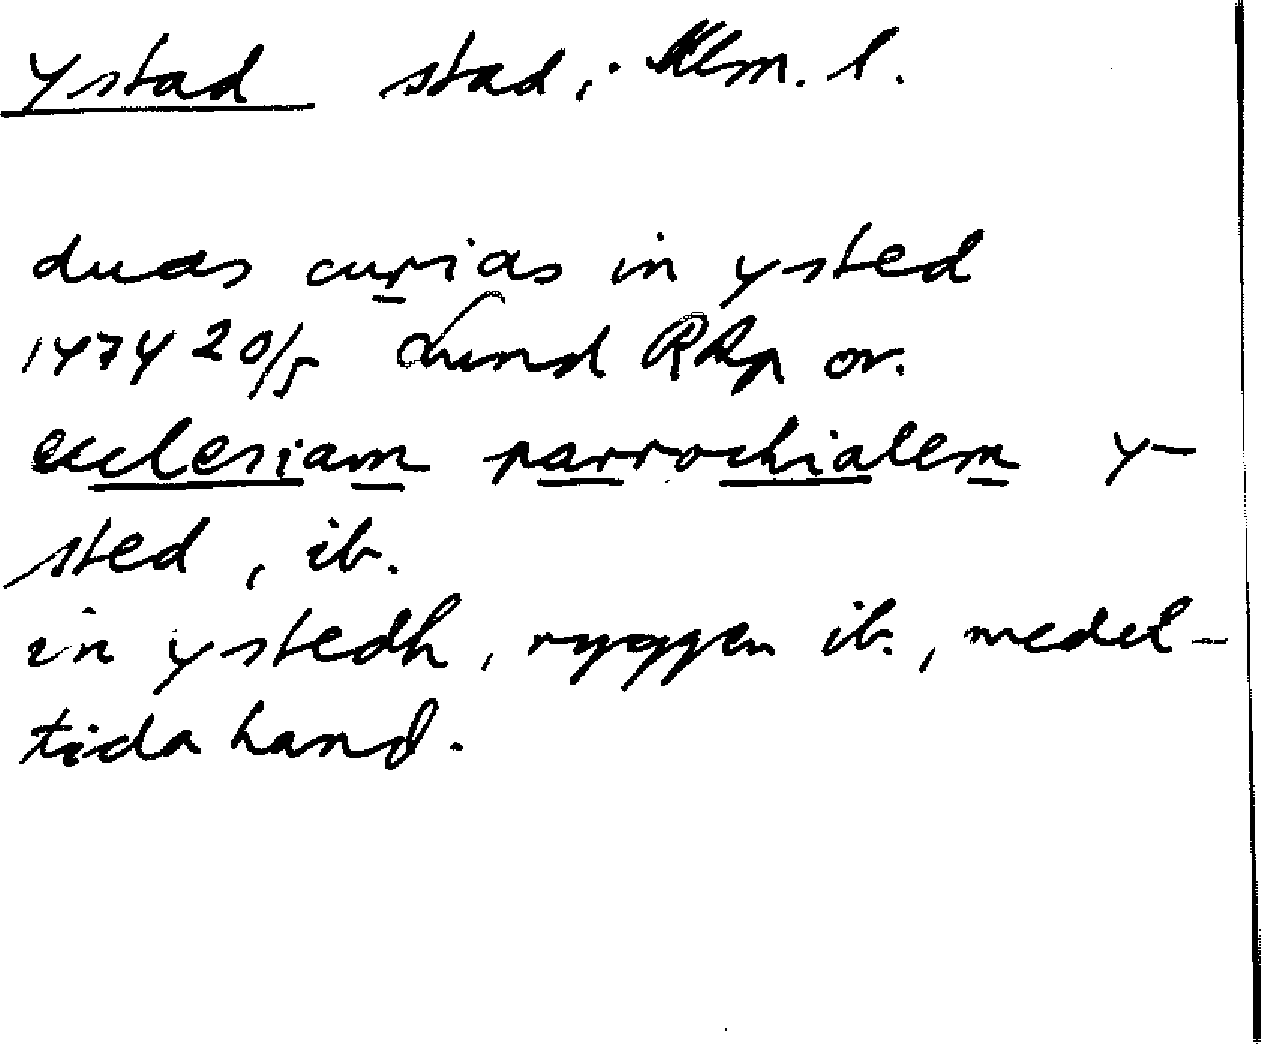 Ystad stad, Mlm. l.
duas curias in ysted
1474 20/5 Lund RAp or.
ecclesiam parrochialem y-
sted, ib.
in ystedh, ryggen ib., medel-
tida hand.